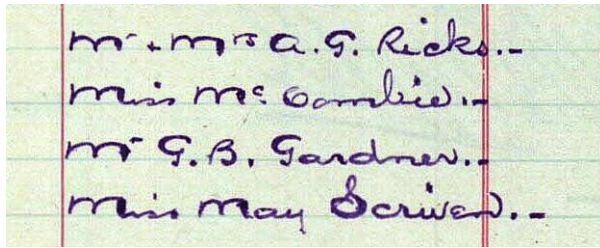 Mr + Mrs A. G. Ricks.-
Miss McCombie.-
Mr G. B. Gardner.-
Miss May Scriven.-